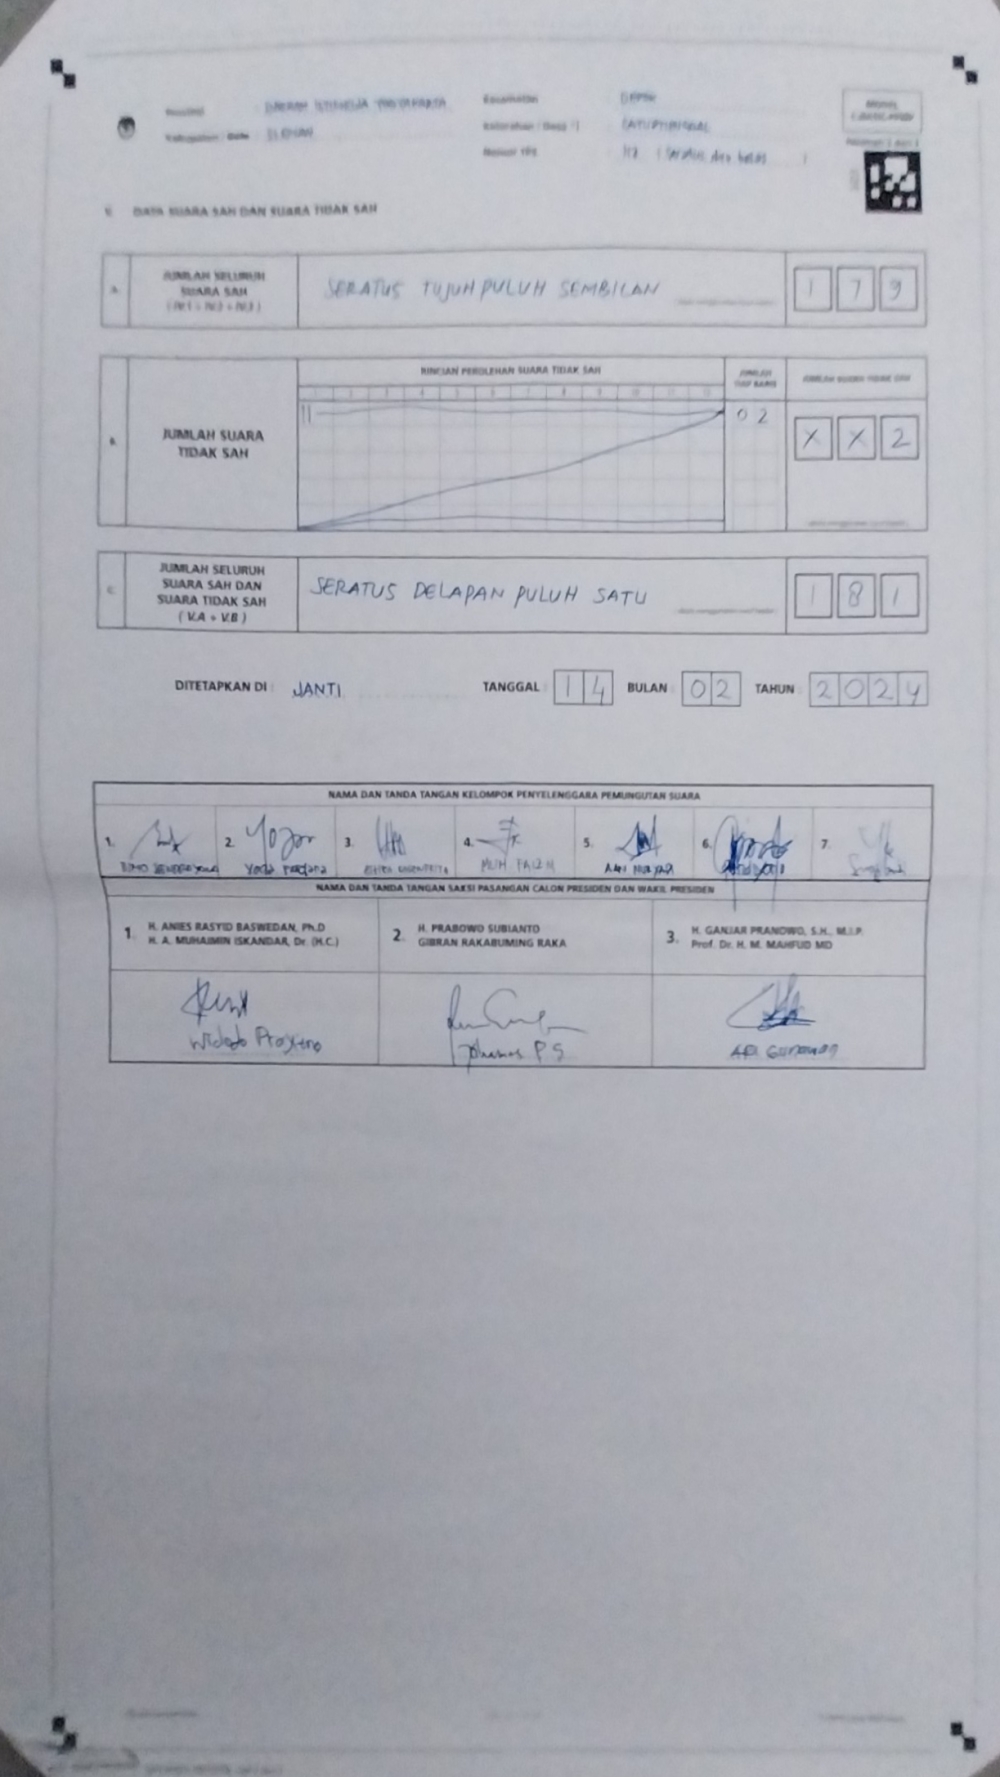 DAERAH ISTIMEWA YOGYAKARTA
SLEMAN
Kecamatan DEPOK
Kelurahan / Desa CATURTUNGGAL
Nomor TPS 112 ( Seratus dua belas )
V. DATA SUARA SAH DAN SUARA TIDAK SAH
A. JUMLAH SELURUH
SUARA SAH
SERATUS TUJUH PULUH SEMBILAN
1 7 9
RINCIAN PEROLEHAN SUARA TIDAK SAH
B. JUMLAH SUARA
TIDAK SAH
0 2
X X 2
C. JUMLAH SELURUH
SUARA SAH DAN
SUARA TIDAK SAH
( V.A + V.B )
SERATUS DELAPAN PULUH SATU
1 8 1
DITETAPKAN DI : JANTI TANGGAL 14 BULAN 02 TAHUN 2024
NAMA DAN TANDA TANGAN KELOMPOK PENYELENGGARA PEMUNGUTAN SUARA
1. 2. 3. 4. 5. 6. 7.
MUH FAIZIN
NAMA DAN TANDA TANGAN SAKSI PASANGAN CALON PRESIDEN DAN WAKIL PRESIDEN
1. H. ANIES RASYID BASWEDAN, Ph.D
H. A. MUHAIMIN ISKANDAR, Dr. (H.C.)
2. H. PRABOWO SUBIANTO
GIBRAN RAKABUMING RAKA
3. H. GANJAR PRANOWO, S.H., M.I.P.
Prof. Dr. H. M. MAHFUD MD
Widodo
P S